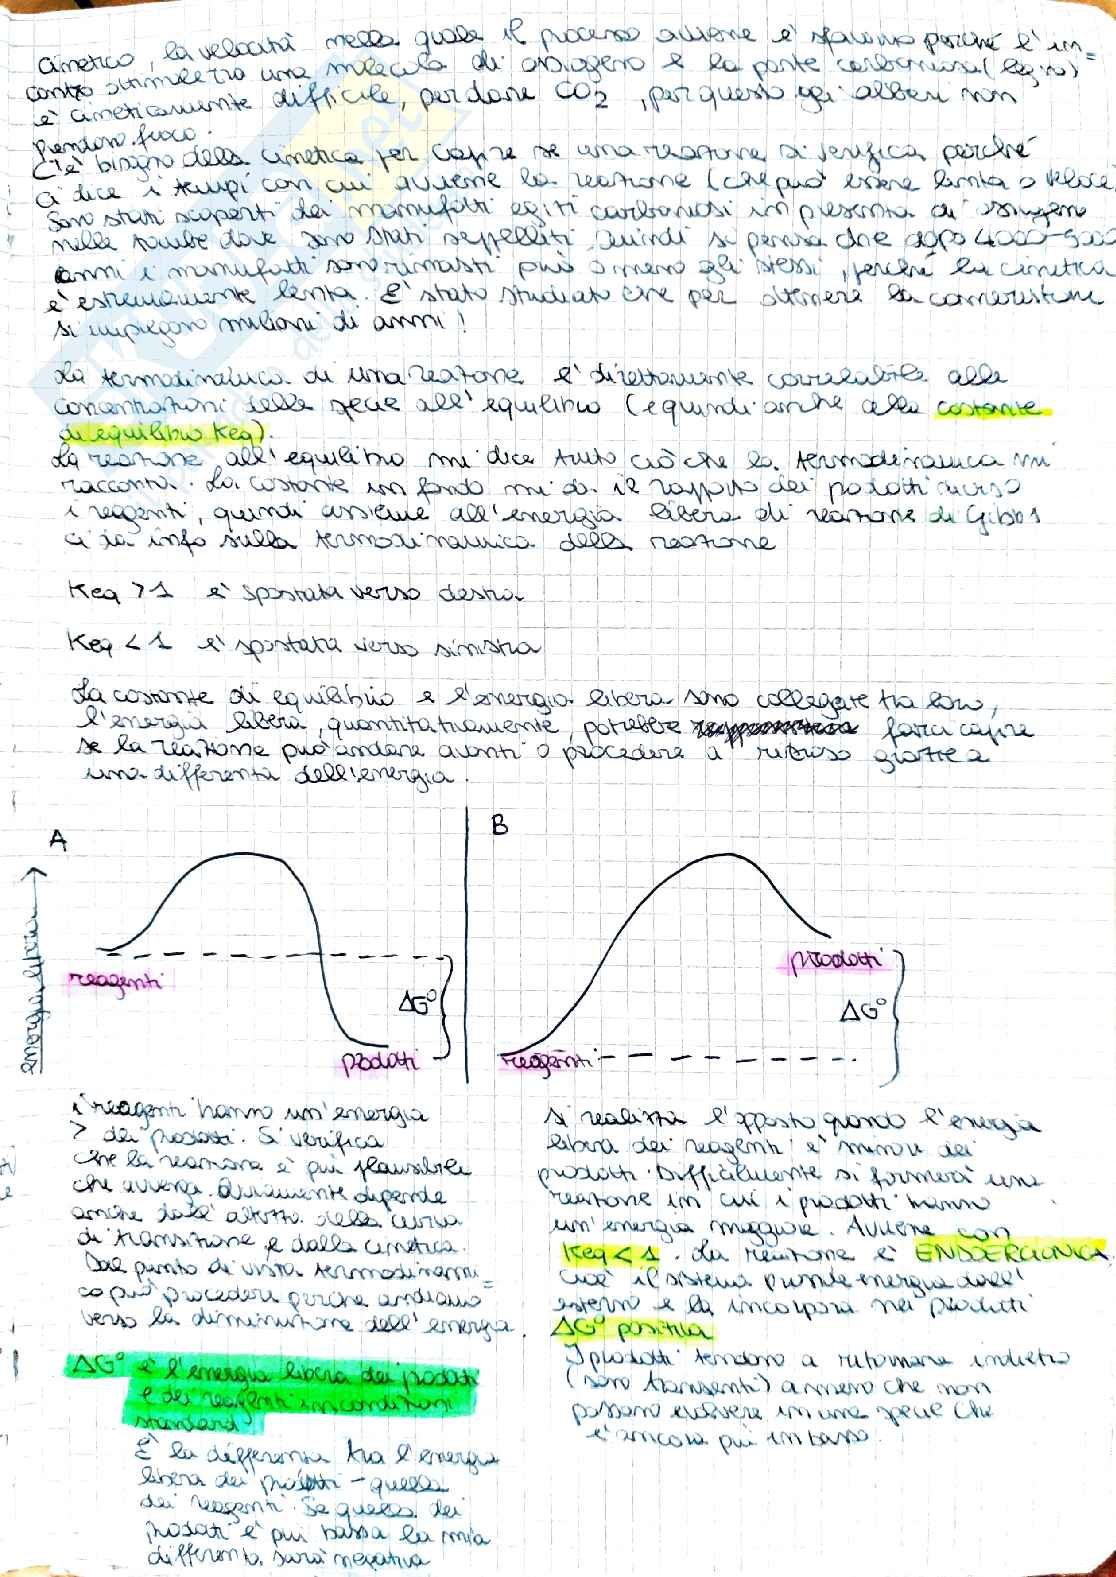 cinetico, la velocità nella quale il processo avviene è sfavorito perché l'in=
contro simmetrico una molecola di ossigeno e la parte carboniosa (legno)
è cineticamente difficile, per dare CO2, per questo gli alberi non
prendono fuoco.
C'è bisogno della cinetica per capire se una reazione si verifica perché
ci dice i tempi con cui avviene la reazione (che può essere lenta o veloce)
Sono stati scoperti dei manufatti egizi carboniosi in presenza di ossigeno
nelle tombe dove sono stati seppelliti, quindi si pensa che dopo 4000-5000
anni i manufatti sono rimasti più o meno gli stessi, perché la cinetica
è estremamente lenta. E' stato studiato che per ottenere la conversione
si impiegano milioni di anni!
La termodinamica di una reazione è direttamente correlabile alle
concentrazioni delle specie all'equilibrio (e quindi anche alla costante
di equilibrio Keq).
La reazione all'equilibrio mi dice tutto ciò che la termodinamica mi
racconta. La costante in fondo mi dà il rapporto dei prodotti verso
i reagenti, quindi assieme all'energia libera di reazione di Gibbs
ci dà info sulla termodinamica della reazione
Keq > 1 è spostata verso destra
Keq < 1 è spostata verso sinistra
La costante di equilibrio e l'energia libera sono collegate tra loro,
l'energia libera, quantitativamente, potrebbe farci capire
se la reazione può andare avanti o procedere a ritroso grazie a
una differenza dell'energia.
A
B
energia libera
reagenti
ΔG°
prodotti
prodotti
ΔG°
reagenti
i reagenti hanno un'energia
> dei prodotti. Si verifica
che la reazione è più plausibile
che avvenga. Ovviamente dipende
anche dall'altezza della curva
di transizione e dalla cinetica.
Dal punto di vista termodinami=
co può procedere perché andiamo
verso la diminuzione dell'energia.
ΔG° è l'energia libera dei prodotti
e dei reagenti in condizioni
standard
E' la differenza tra l'energia
libera dei prodotti - quella
dei reagenti. Se quella dei
prodotti è più bassa la mia
differenza sarà negativa
Si realizza l'opposto quando l'energia
libera dei reagenti è minore dei
prodotti. Difficilmente si formerà una
reazione in cui i prodotti hanno
un'energia maggiore. Avviene con
Keq < 1. La reazione è ENDOERGONICA,
cioè il sistema prende energia dall'
esterno e la incorpora nei prodotti
ΔG° positiva
I prodotti tendono a ritornare indietro
(sono transienti) a meno che non
possano evolvere in una specie che
è ancora più in basso.